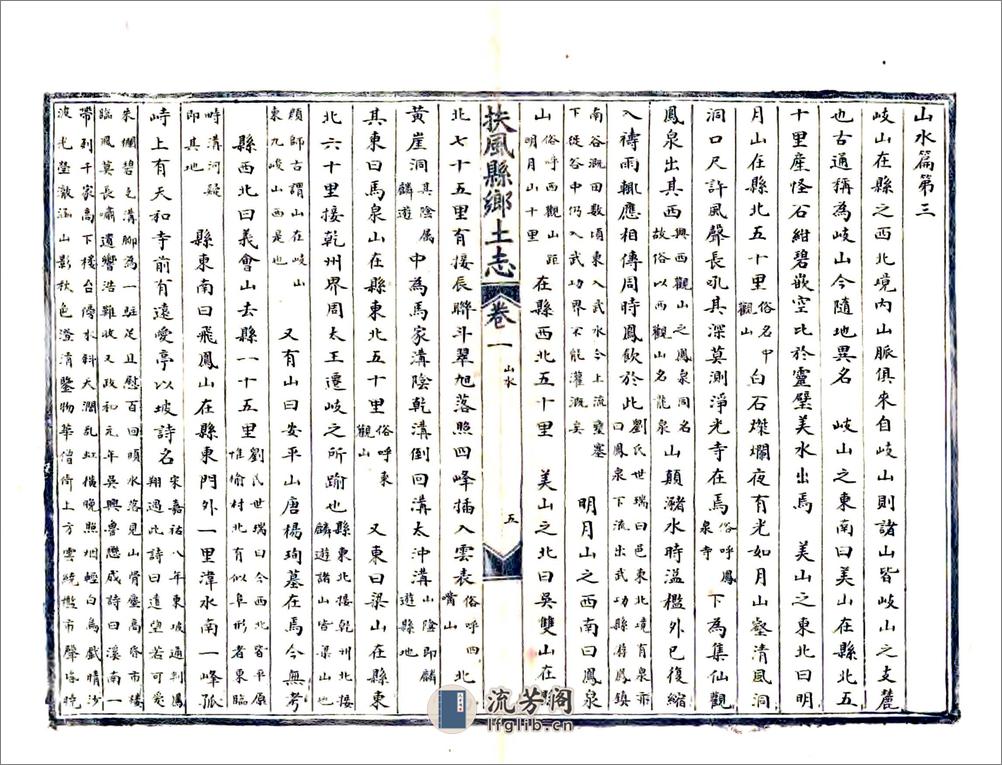 山水篇第三
岐山在縣之西北境內山脈俱來自岐山則諸山皆岐山之支麓
也古通稱為岐山今隨地異名　岐山之東南曰美山在縣北五
十里產怪石紺碧嵌空比於靈璧美水出焉　美山之東北曰明
月山在縣北五十里俗名中觀山白石璨爛夜有光如月山壑清風洞
洞口尺許風聲長吼其深莫測淨光寺在焉俗呼鳳泉寺下為集仙觀
鳳泉出其西與西觀山之鳳泉同名故俗以西觀山名龍泉山顛瀦水時溢檻外已復縮
入禱雨輒應相傳周時鳳飲於此劉氏世瑞曰邑東北境有泉亦口鳳泉下流出武功縣游鳳鎮
南谷溉田數頃東入武水今上流壅塞下徙谷中仍入武功界不能灌溉矣　明月山之西南曰鳳泉
山俗呼西觀山距明月山十里在縣西北五十里　美山之北曰吳雙山在縣
扶風縣鄉土志　卷一　山水　五
北七十五里有接辰聯斗翠旭落照四峰插入雲表俗呼四嘴山北
黃崖洞其陰屬麟遊中為馬家溝陰乾溝倒回溝太沖溝山陰即麟遊縣地
其東曰馬泉山在縣東北五十里俗呼東觀山　又東曰梁山在縣東
北六十里接乾州界周太王遷岐之所踰也縣東北接乾州北接麟遊諸山皆梁山也
顏師古謂山在岐山東九嵕山西是也　又有山曰安平山唐楊珣墓在焉今無考
縣西北曰義會山去縣一十五里劉氏世瑞曰今西北容平原惟榆村北有似阜形者東臨
時溝河疑即其地　縣東南曰飛鳳山在縣東門外一里湋水南一峰孤
峙上有天和寺前有遠愛亭以坡詩名宋嘉祐八年東坡通判鳳翔過此詩曰遠望若可愛
朱欄碧瓦溝聊為一駐足且慰百回頭水落見山骨塵高昏市樓臨風莫長嘯遺響浩難收又政和元年吳興魯懋成詩曰溪南一
帶列千家高下樓台傍水斜天濶亂虹橫晚照烟輕白鳥戲晴沙波光瑩澈涵山影秋色澄清鑒物華僧倚上方雲繞檻市聲喀曉
流芳阁
lfglib.cn